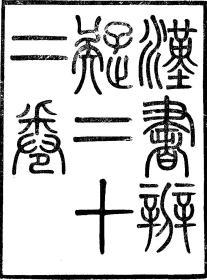 漢書辨
疑二十
二卷